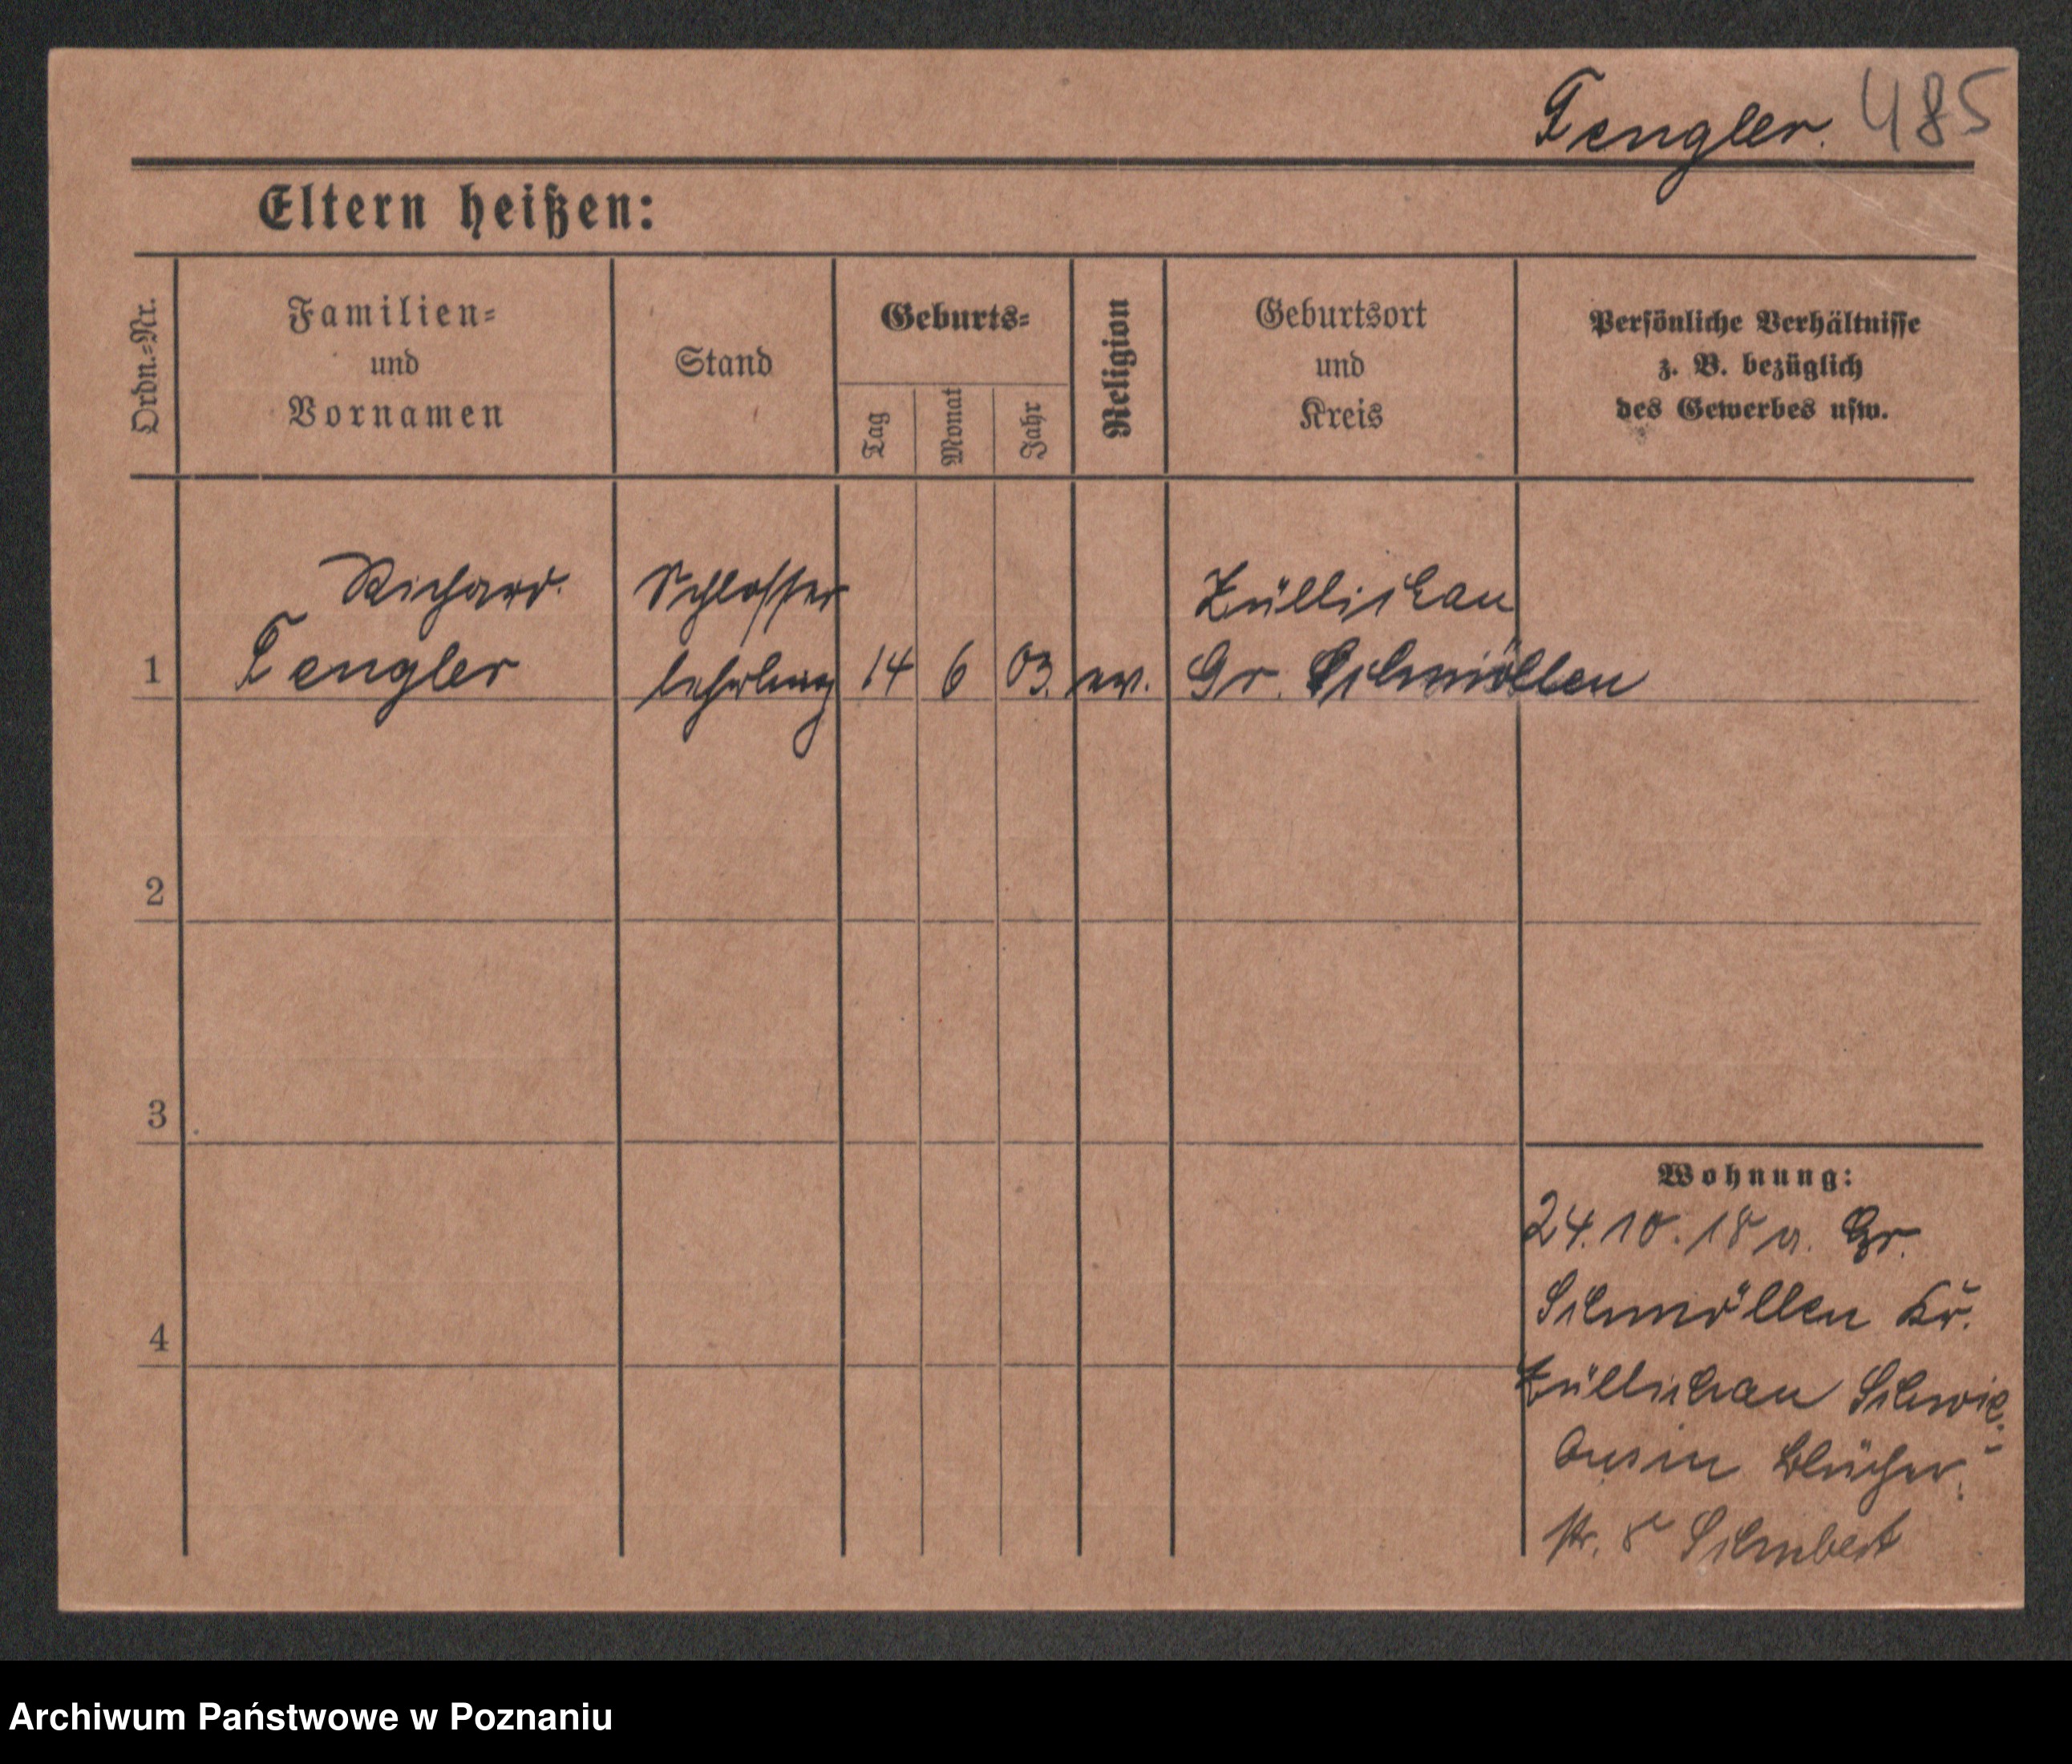 Fengler. 485
Eltern heißen:
Ordn.=Nr.
Familien=
und
Vornamen
Stand
Geburts=
Tag
Monat
Jahr
Religion
Geburtsort
und
Kreis
Persönliche Verhältnisse
z. B. bezüglich
des Gewerbes usw.
Richard.
Fengler
Schlosser
lehrling
1
14
6
03.
ev.
Züllichau
Gr. Schmöllen
2
3
4
Wohnung:
24.10.18 a. Gr.
Schmöllen Kr.
Züllichau Schwie
Blücher
str. 8